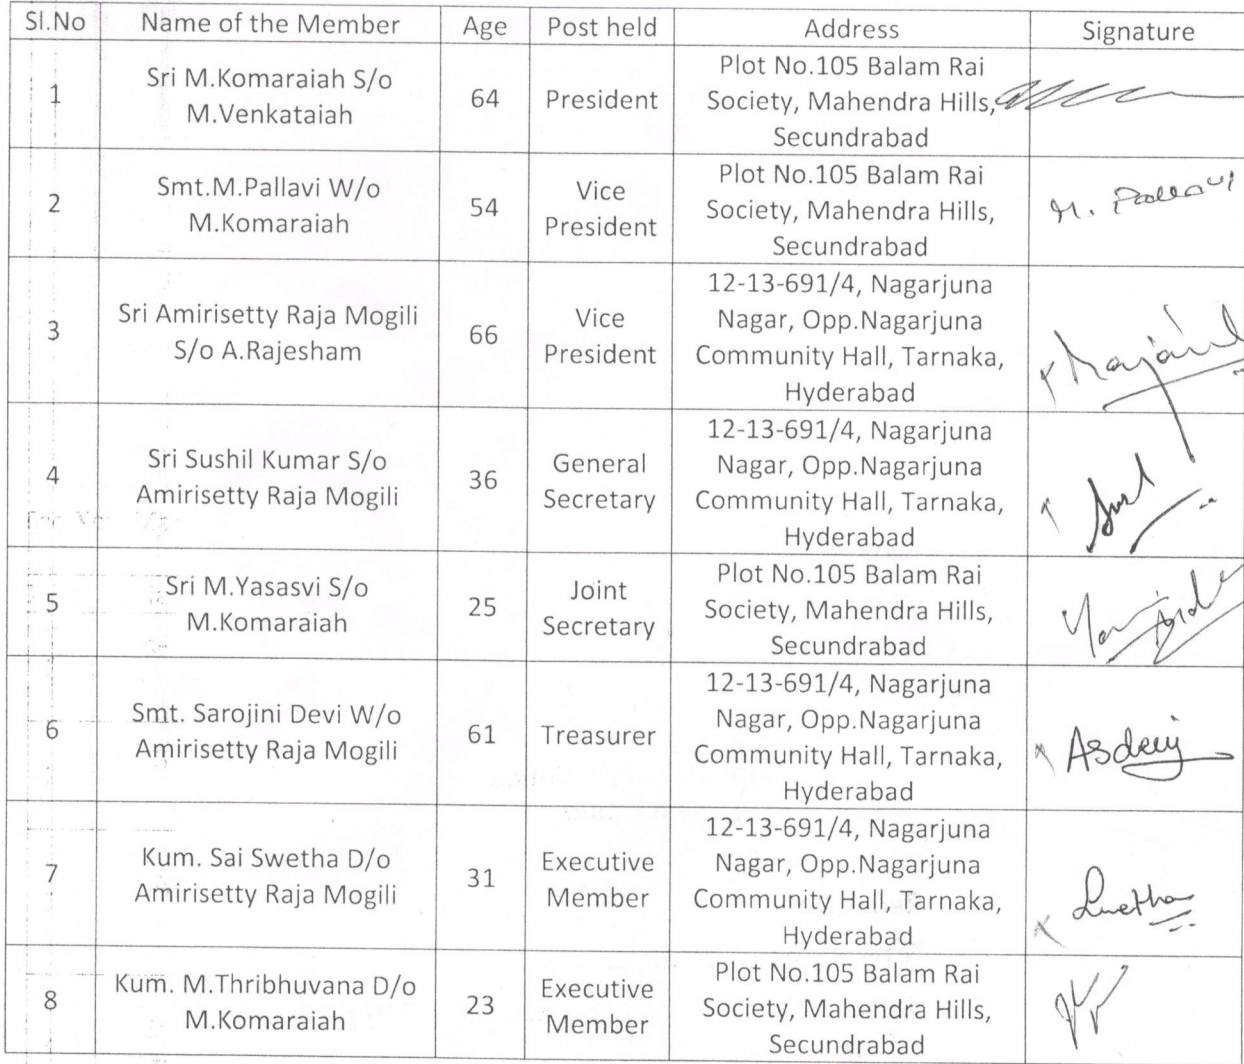 Sl.No Name of the Member Age Post held Address Signature
1 Sri M.Komaraiah S/o M.Venkataiah 64 President Plot No.105 Balam Rai Society, Mahendra Hills, Secundrabad
2 Smt.M.Pallavi W/o M.Komaraiah 54 Vice President Plot No.105 Balam Rai Society, Mahendra Hills, Secundrabad M. Pallavi
3 Sri Amirisetty Raja Mogili S/o A.Rajesham 66 Vice President 12-13-691/4, Nagarjuna Nagar, Opp.Nagarjuna Community Hall, Tarnaka, Hyderabad
4 Sri Sushil Kumar S/o Amirisetty Raja Mogili 36 General Secretary 12-13-691/4, Nagarjuna Nagar, Opp.Nagarjuna Community Hall, Tarnaka, Hyderabad
5 Sri M.Yasasvi S/o M.Komaraiah 25 Joint Secretary Plot No.105 Balam Rai Society, Mahendra Hills, Secundrabad
6 Smt. Sarojini Devi W/o Amirisetty Raja Mogili 61 Treasurer 12-13-691/4, Nagarjuna Nagar, Opp.Nagarjuna Community Hall, Tarnaka, Hyderabad ASdevi
7 Kum. Sai Swetha D/o Amirisetty Raja Mogili 31 Executive Member 12-13-691/4, Nagarjuna Nagar, Opp.Nagarjuna Community Hall, Tarnaka, Hyderabad Swetha
8 Kum. M.Thribhuvana D/o M.Komaraiah 23 Executive Member Plot No.105 Balam Rai Society, Mahendra Hills, Secundrabad